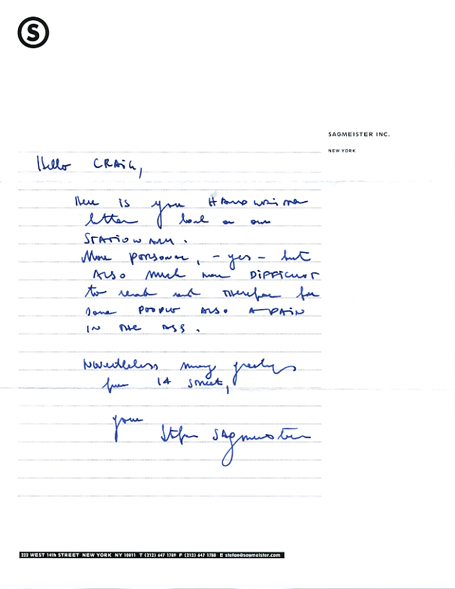 S
SAGMEISTER INC.
NEW YORK
Hello CRAIG,
Here is your HANDWRITTEN
letter back on our
STATIONARY.
More personal, - yes - but
ALSO much more DIFFICULT
to read and therefore for
some people ALSO A PAIN
IN THE ASS.
Nevertheless many greetings
from 14 street,
your
Stefan Sagmeister
222 WEST 14TH STREET NEW YORK NY 10011 T (212) 647 1789 F (212) 647 1788 E stefan@sagmeister.com